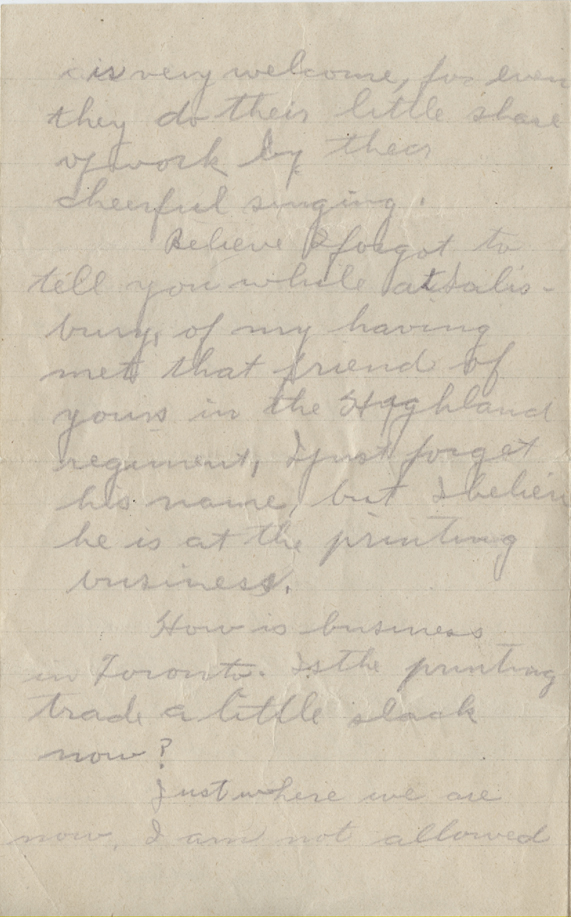 is very welcome, for even
they do their little share
of work by their
cheerful singing.
Believe I forgot to
tell you while at Salis-
bury, of my having
met that friend of
yours in the Highland
regiment, I just forget
his name, but I believ
he is at the printing
business.
How is business
in Toronto. Is the printing
trade a little slack
now?
Just where we are
now, I am not allowed